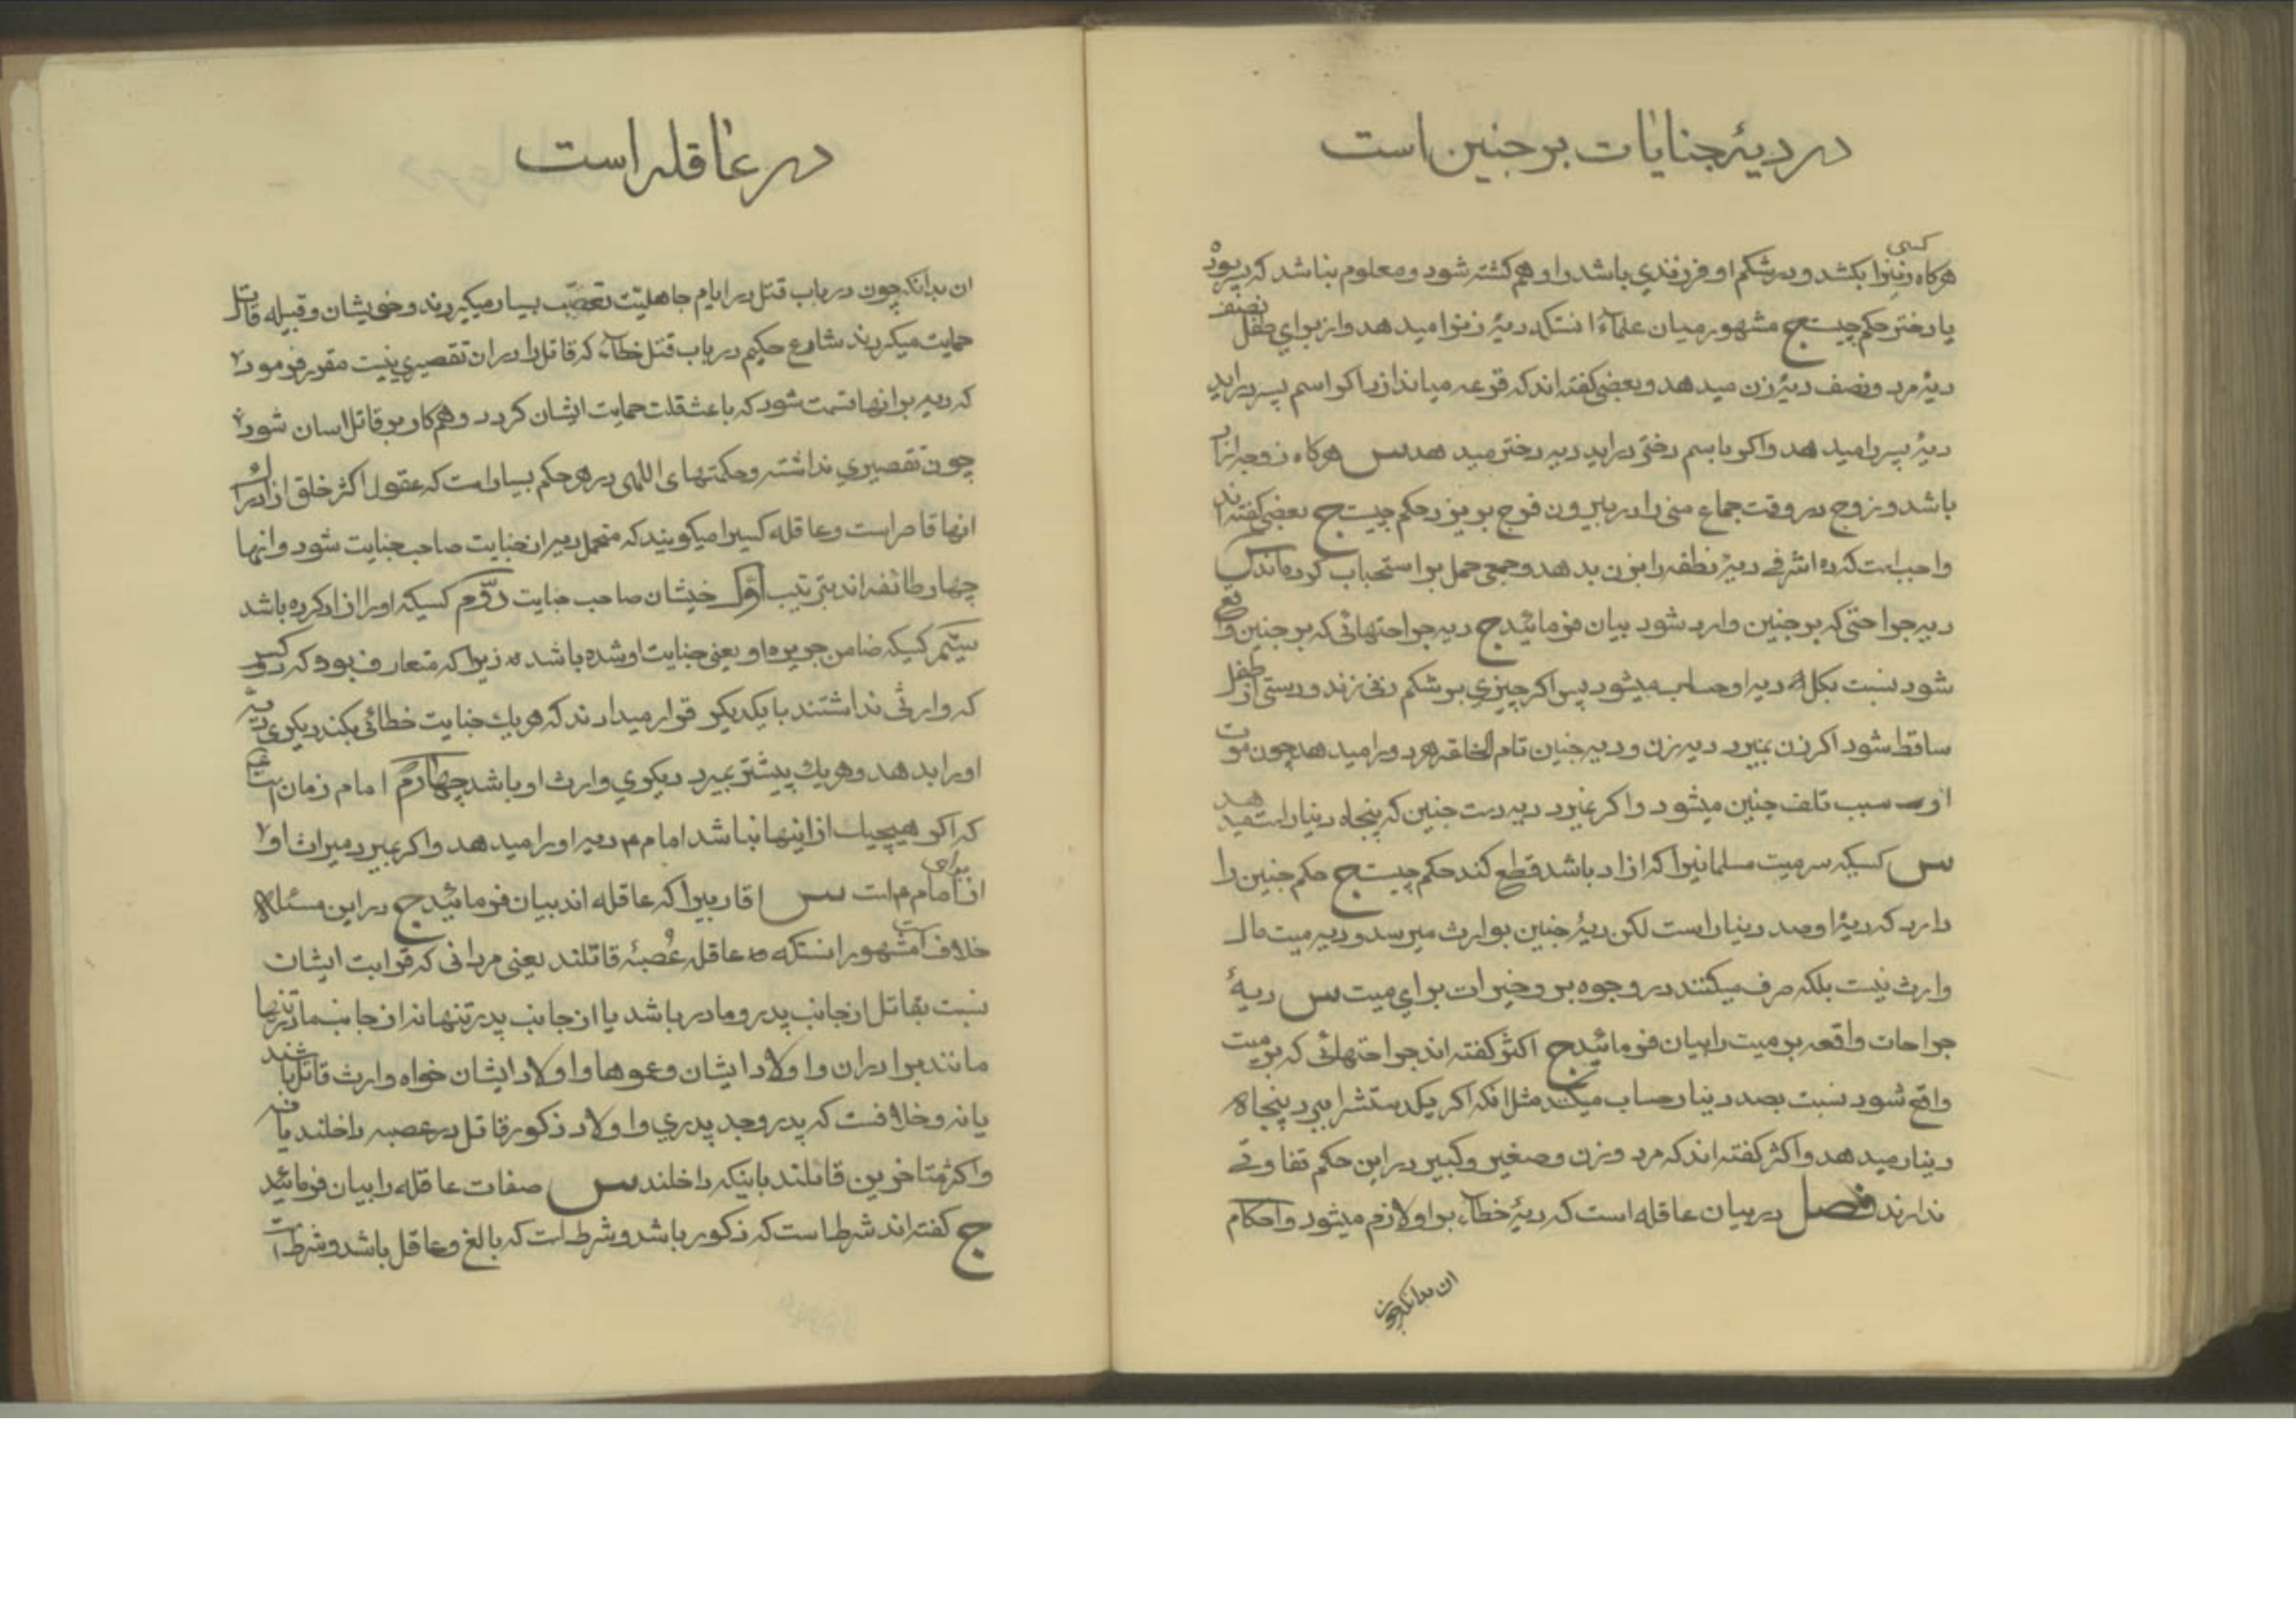 در دیهٔ جنایات بر جنین است
هرکاه کسی زنیرا بکشد و در شکم او فرزندی باشد و او هم کشته شود و معلوم نباشد که پسر بوده
یا دختر حکم چیست ج مشهور میان علماء انستکه دیهٔ زنرا میدهد و از برای طفل نصف
دیهٔ مرد و نصف دیهٔ زن میدهد و بعضی کفته اند که قرعه میاندازد اکر اسم پسر دراید
دیهٔ پسر را میدهد و اکر باسم دختر دراید دیه دختر میدهد س هرکاه زوجه ازاد
باشد و زوج در وقت جماع منی را در بیرون فرج بریزد حکم چیست ج بعضی کفته اند
واجب است که ده اشرفی دیهٔ نطفه را بزن بدهد و جمعی حمل بر استحباب کرده اند س
دیه جراحتی که بر جنین وارد شود بیان فرمائید ج دیه جراحتهائی که بر جنین واقع
شود نسبت بکل دیه او حساب میشود پس اکر چیزی بر شکم زنی زند و دستی از طفل
ساقط شود اکر زن بمیرد دیه زن و دیه جنین تام الخلقه هر دو را میدهد چون موت
او سبب تلف جنین میشود و اکر نمیرد دیه دست جنین که پنجاه دینار است میدهد
س کسیکه سر میت مسلمانیرا که ازاد باشد قطع کند حکم چیست ج حکم جنین را
دارد که دیهٔ او صد دینار است لکن دیهٔ جنین بوارث میرسد و دیه میت مال
وارث نیست بلکه صرف میکنند در وجوه بر و خیرات برای میت س دیهٔ
جراحات واقعه بر میت را بیان فرمائید ج اکثر کفته اند جراحتهائی که بر میت
واقع شود نسبت بصد دینار حساب میکند مثل انکه اکر یکدستشرا ببرد پنجاه
دینار میدهد و اکثر کفته اند که مرد و زن و صغیر و کبیر در این حکم تفاوتی
ندارند فصل در بیان عاقله است که دیهٔ خطاء بر او لازم میشود و احکام
ان بدانکه چون
در عاقله است
ان بدانکه چون در باب قتل در ایام جاهلیت تعصب بسیار میکردند و خویشان و قبیله قاتل
حمایت میکردند شارع حکیم در باب قتل خطاء که قاتل را در ان تقصیری نیست مقرر فرمود
که دیه بر انها قسمت شود که باعث قلت حمایت ایشان کردد و هم کار بر قاتل اسان شود
چون تقصیری نداشته و حکمتهای اللهی در هر حکم بسیار است که عقول اکثر خلق از ادراک
انها قاصر است و عاقله کسیرا میکویند که متحمل دیه ان جنایت صاحب جنایت شود و انها
چهار طائفه اند بترتیب اول خیشان صاحب جنایت دوم کسیکه او را ازاد کرده باشد
سیم کسیکه ضامن جریره او یعنی جنایت او شده باشد زیرا که متعارف بود که دو کس
که وارثی نداشتند با یکدیکر قرار میدادند که هر یک جنایت خطائی بکند دیکری دیه
او را بدهد و هر یک پیشتر بمیرد دیکری وارث او باشد چهارم امام زمان است
که اکر هیچیک از اینها نباشد امام دیه او را میدهد و اکر بمیرد میراث او
از برای امام است س اقاربیرا که عاقله اند بیان فرمائید ج در این مسئله
خلاف است مشهور انستکه عاقله عصبهٔ قاتلند یعنی مردانی که قرابت ایشان
نسبت بقاتل از جانب پدر و مادر باشد یا از جانب پدر تنها نه از جانب مادر تنها
مانند برادران و اولاد ایشان و عموها و اولاد ایشان خواه وارث قاتل باشند
یا نه و خلافست که پدر و جد پدری و اولاد ذکور قاتل در عصبه داخلند یا نه
و اکثر متاخرین قائلند باینکه داخلند س صفات عاقله را بیان فرمائید
ج کفته اند شرط است که ذکور باشد و شرط است که بالغ و عاقل باشد و شرط است